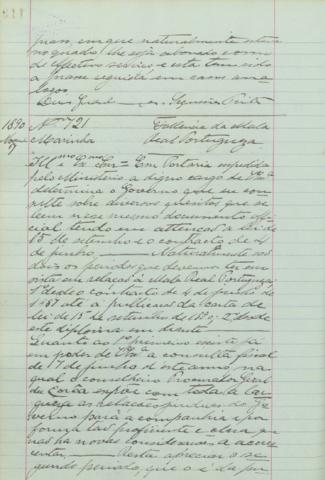 que naturalmente
no quadro lhe seja abonado como
de effectivo serviço e esta tem sido
a praxe seguida em casos ana-
logos
Deus Guarde
1890 Nº 721
Marinha Real Portugueza
Illmo Exmo Snr = Em Portaria expedida
pelo Ministerio a digno cargo de V Exa
determina o Governo que eu con-
sulte sobre diversos quesitos que se
leem n'esse mesmo documento offi-
cial tendo em attenção a lei de
15 de setembro e o contracto de 4
de junho. Naturalmente são
dois os periodos que devemos ter em
vista em relação á Mala Real Portugueza
1º desde o contracto de 4 de junho de
até á publicação da carta de
lei de 15 de setembro de 2º desde
este diploma em diante.
Quanto ao primeiro existe já
em poder de V Exa a consulta fiscal
de 17 de junho d'este anno, na
qual o conselheiro Procurador Geral
da Corôa expoz com toda a lar-
gueza as relações juridicas do Go-
verno para a companhia e por
forma tão proficiente e clara que
nas ha novas considerações a accres-
centar. Resta apreciar o se-
gundo periodo, que é o da